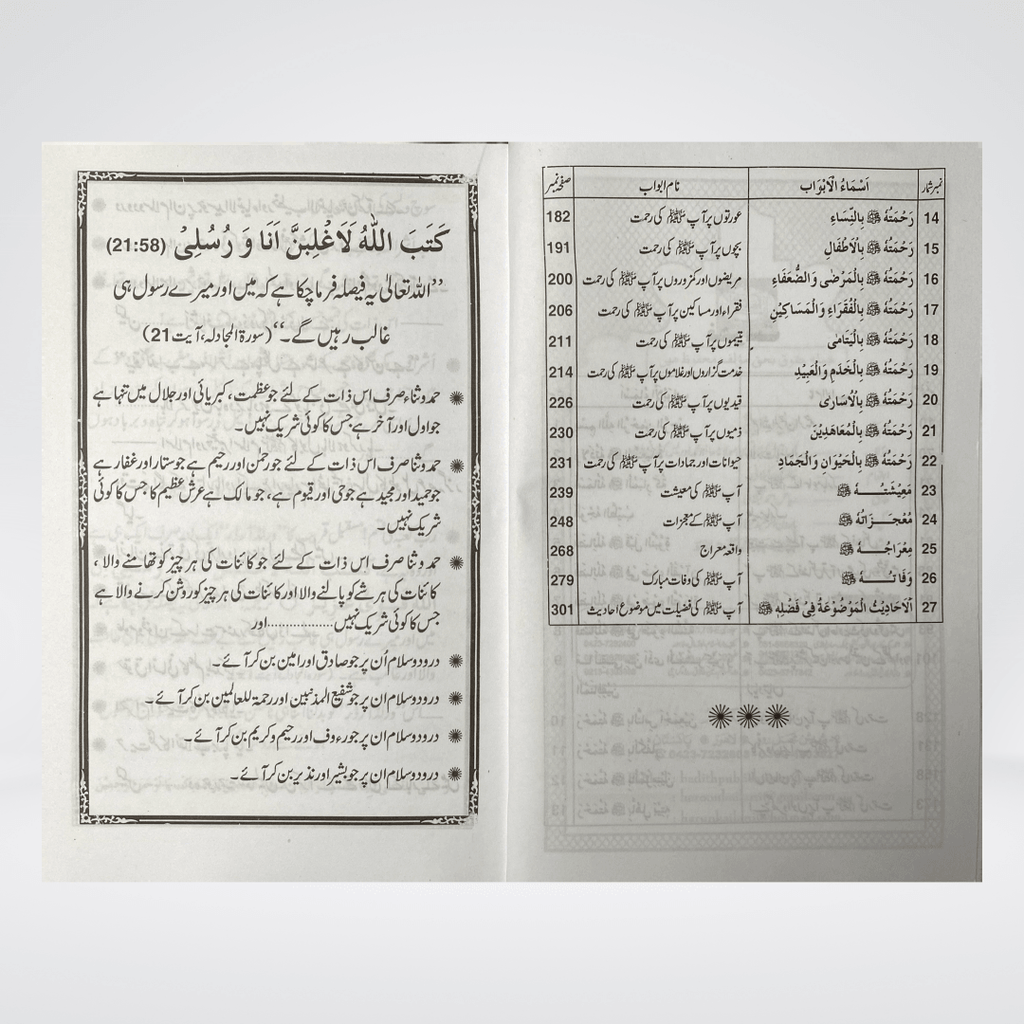 نمبر شمار اَسْمَاءُ الْاَبْوَاب نام ابواب صفحہ نمبر
14 رَحْمَتُهٗ ﷺ بِالنِّسَاءِ عورتوں پر آپ ﷺ کی رحمت 182
15 رَحْمَتُهٗ ﷺ بِالْاَطْفَالِ بچوں پر آپ ﷺ کی رحمت 191
16 رَحْمَتُهٗ ﷺ بِالْمَرْضٰی وَالضُّعَفَاءِ مریضوں اور کمزوروں پر آپ ﷺ کی رحمت 200
17 رَحْمَتُهٗ ﷺ بِالْفُقَرَاءِ وَالْمَسَاكِيْنِ فقراء اور مساکین پر آپ ﷺ کی رحمت 206
18 رَحْمَتُهٗ ﷺ بِالْيَتَامٰی یتیموں پر آپ ﷺ کی رحمت 211
19 رَحْمَتُهٗ ﷺ بِالْخَدَمِ وَالْعَبِيْدِ خدمت گزاروں اور غلاموں پر آپ ﷺ کی رحمت 214
20 رَحْمَتُهٗ ﷺ بِالْاُسَارٰی قیدیوں پر آپ ﷺ کی رحمت 226
21 رَحْمَتُهٗ ﷺ بِالْمُعَاهَدِيْنَ ذمیوں پر آپ ﷺ کی رحمت 230
22 رَحْمَتُهٗ ﷺ بِالْحَيْوَانِ وَالْجَمَادِ حیوانات اور جمادات پر آپ ﷺ کی رحمت 231
23 مَعِيْشَتُـــهٗ ﷺ آپ ﷺ کی معیشت 239
24 مُعْجَـــزَاتُهٗ ﷺ آپ ﷺ کے معجزات 248
25 مِعْرَاجُـــهٗ ﷺ واقعہ معراج 268
26 وَفَاتُـــهٗ ﷺ آپ ﷺ کی وفات مبارک 279
27 اَلْاَحَادِيْثُ الْمَوْضُوْعَةُ فِیْ فَضْلِهٖ ﷺ آپ ﷺ کی فضیلت میں موضوع احادیث 301
كَتَبَ اللّٰهُ لَاَغْلِبَنَّ اَنَا وَ رُسُلِیْ (21:58)
’’اللہ تعالیٰ یہ فیصلہ فرما چکا ہے کہ میں اور میرے رسول ہی
غالب رہیں گے۔‘‘ (سورۃ المجادلہ، آیت 21)
حمد و ثناء صرف اس ذات کے لئے جو عظمت، کبریائی اور جلال میں تنہا ہے
جو اول اور آخر ہے جس کا کوئی شریک نہیں۔
حمد و ثنا صرف اس ذات کے لئے جو رحمٰن اور رحیم ہے جو ستار اور غفار ہے
جو حمید اور مجید ہے جو حی اور قیوم ہے، جو مالک ہے عرش عظیم کا جس کا کوئی
شریک نہیں۔
حمد و ثنا صرف اس ذات کے لئے جو کائنات کی ہر چیز کو تھامنے والا ،
کائنات کی ہر شے کو پالنے والا اور کائنات کی ہر چیز کو روشن کرنے والا ہے
جس کا کوئی شریک نہیں .................. اور
درود و سلام اُن پر جو صادق اور امین بن کر آئے۔
درود و سلام ان پر جو شفیع المذنبین اور رحمۃ للعالمین بن کر آئے۔
درود و سلام ان پر جو رءوف اور رحیم و کریم بن کر آئے۔
درود و سلام ان پر جو بشیر اور نذیر بن کر آئے۔